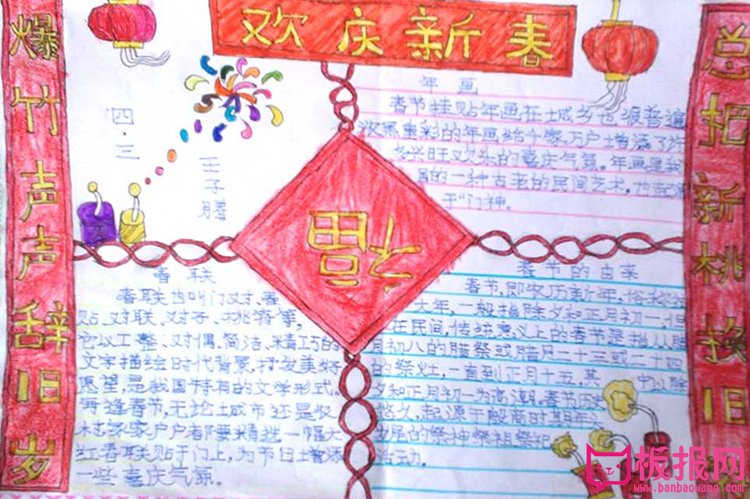 欢庆新春
爆竹声声辞旧岁
总把新桃换旧
四.三
王子腾
年画
春节挂贴年画在城乡也很普遍
浓黑重彩的年画给千家万户增添了许
多兴旺欢乐的喜庆气氛。年画是我
国的一种古老的民间艺术,
于门神。
春联
春联也叫门对、春
贴、对联、对子、桃符等,
它以工整、对偶、简洁、精巧的
文字描绘时代背景,抒发美好
愿望,是我国特有的文学形式。
再逢春节,无论城市还是农
村,家家户户都要精选一幅大
红春联贴于门上,为节日增添
一些喜庆气氛。
春节的由来
春节,即农历新年,俗称过
大年,一般指除夕和正月初一。但
在民间,传统意义上的春节是指从腊
月初八的腊祭或腊月二十三或二十四
的祭灶,一直到正月十五,其中以除
夕和正月初一为高潮。春节历史
悠久,起源于殷商时期年
岁尾的祭神祭祖
活动。
板报网
www.banbaowang.com